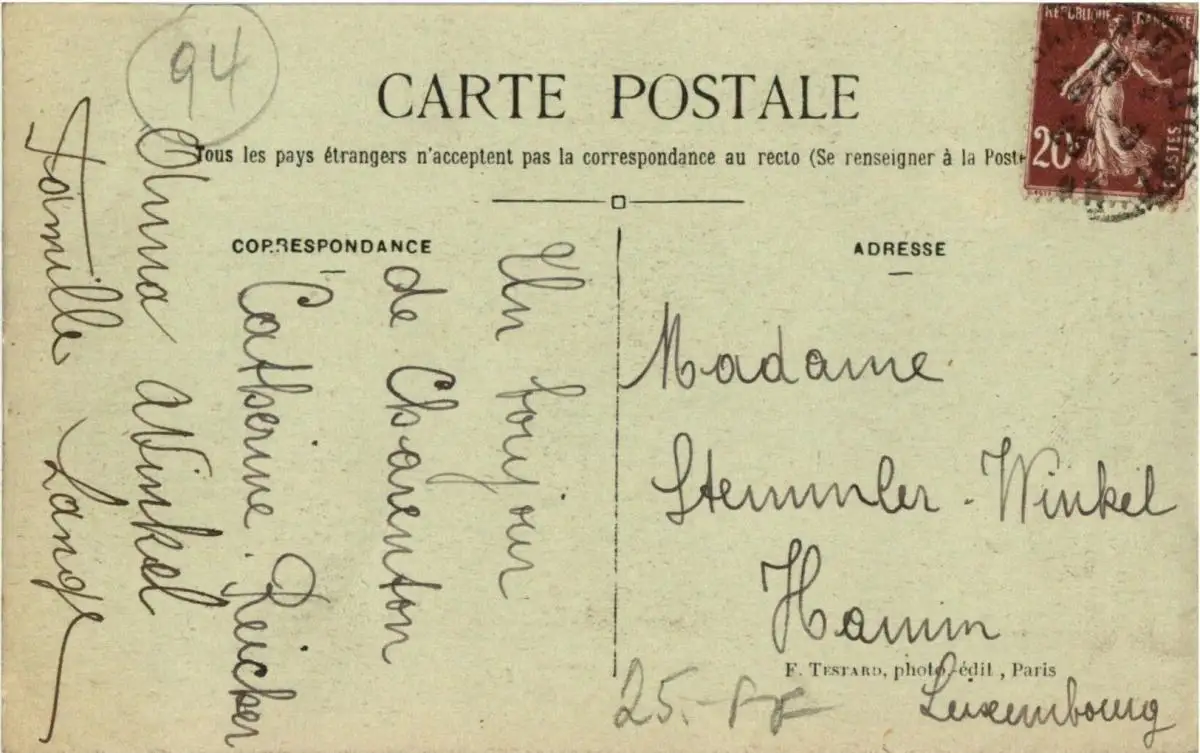 94
RÉPUBLIQUE FRANÇAISE
20
POSTES
CARTE POSTALE
Tous les pays étrangers n'acceptent pas la correspondance au recto (Se renseigner à la Poste
CORRESPONDANCE
Un
de Charenton
Catherine Reicher
Anna Winkel
Famille Lange
ADRESSE
Madame
Stemmler-Winkel
Hamm
F. TESTARD, photo-édit, Paris
Luxembourg
25.-